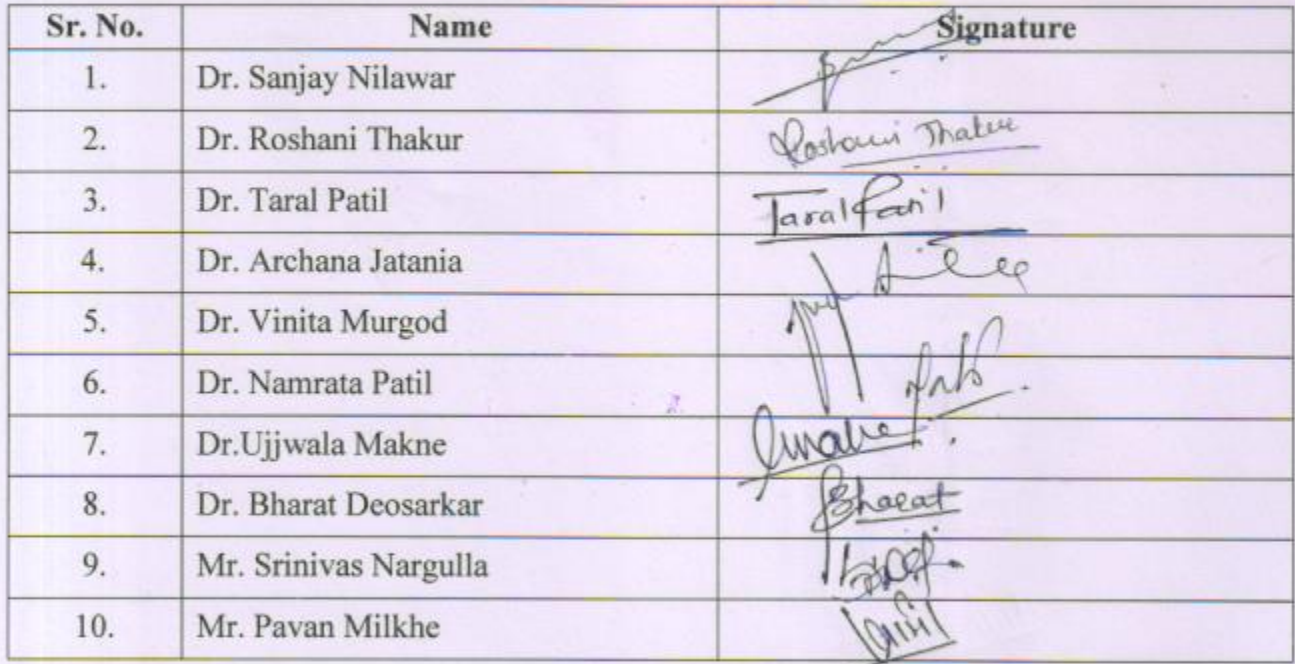 Sr. No. Name Signature
1. Dr. Sanjay Nilawar
2. Dr. Roshani Thakur Roshani Thakur
3. Dr. Taral Patil Taral Patil
4. Dr. Archana Jatania
5. Dr. Vinita Murgod
6. Dr. Namrata Patil
7. Dr.Ujjwala Makne
8. Dr. Bharat Deosarkar Bharat
9. Mr. Srinivas Nargulla
10. Mr. Pavan Milkhe